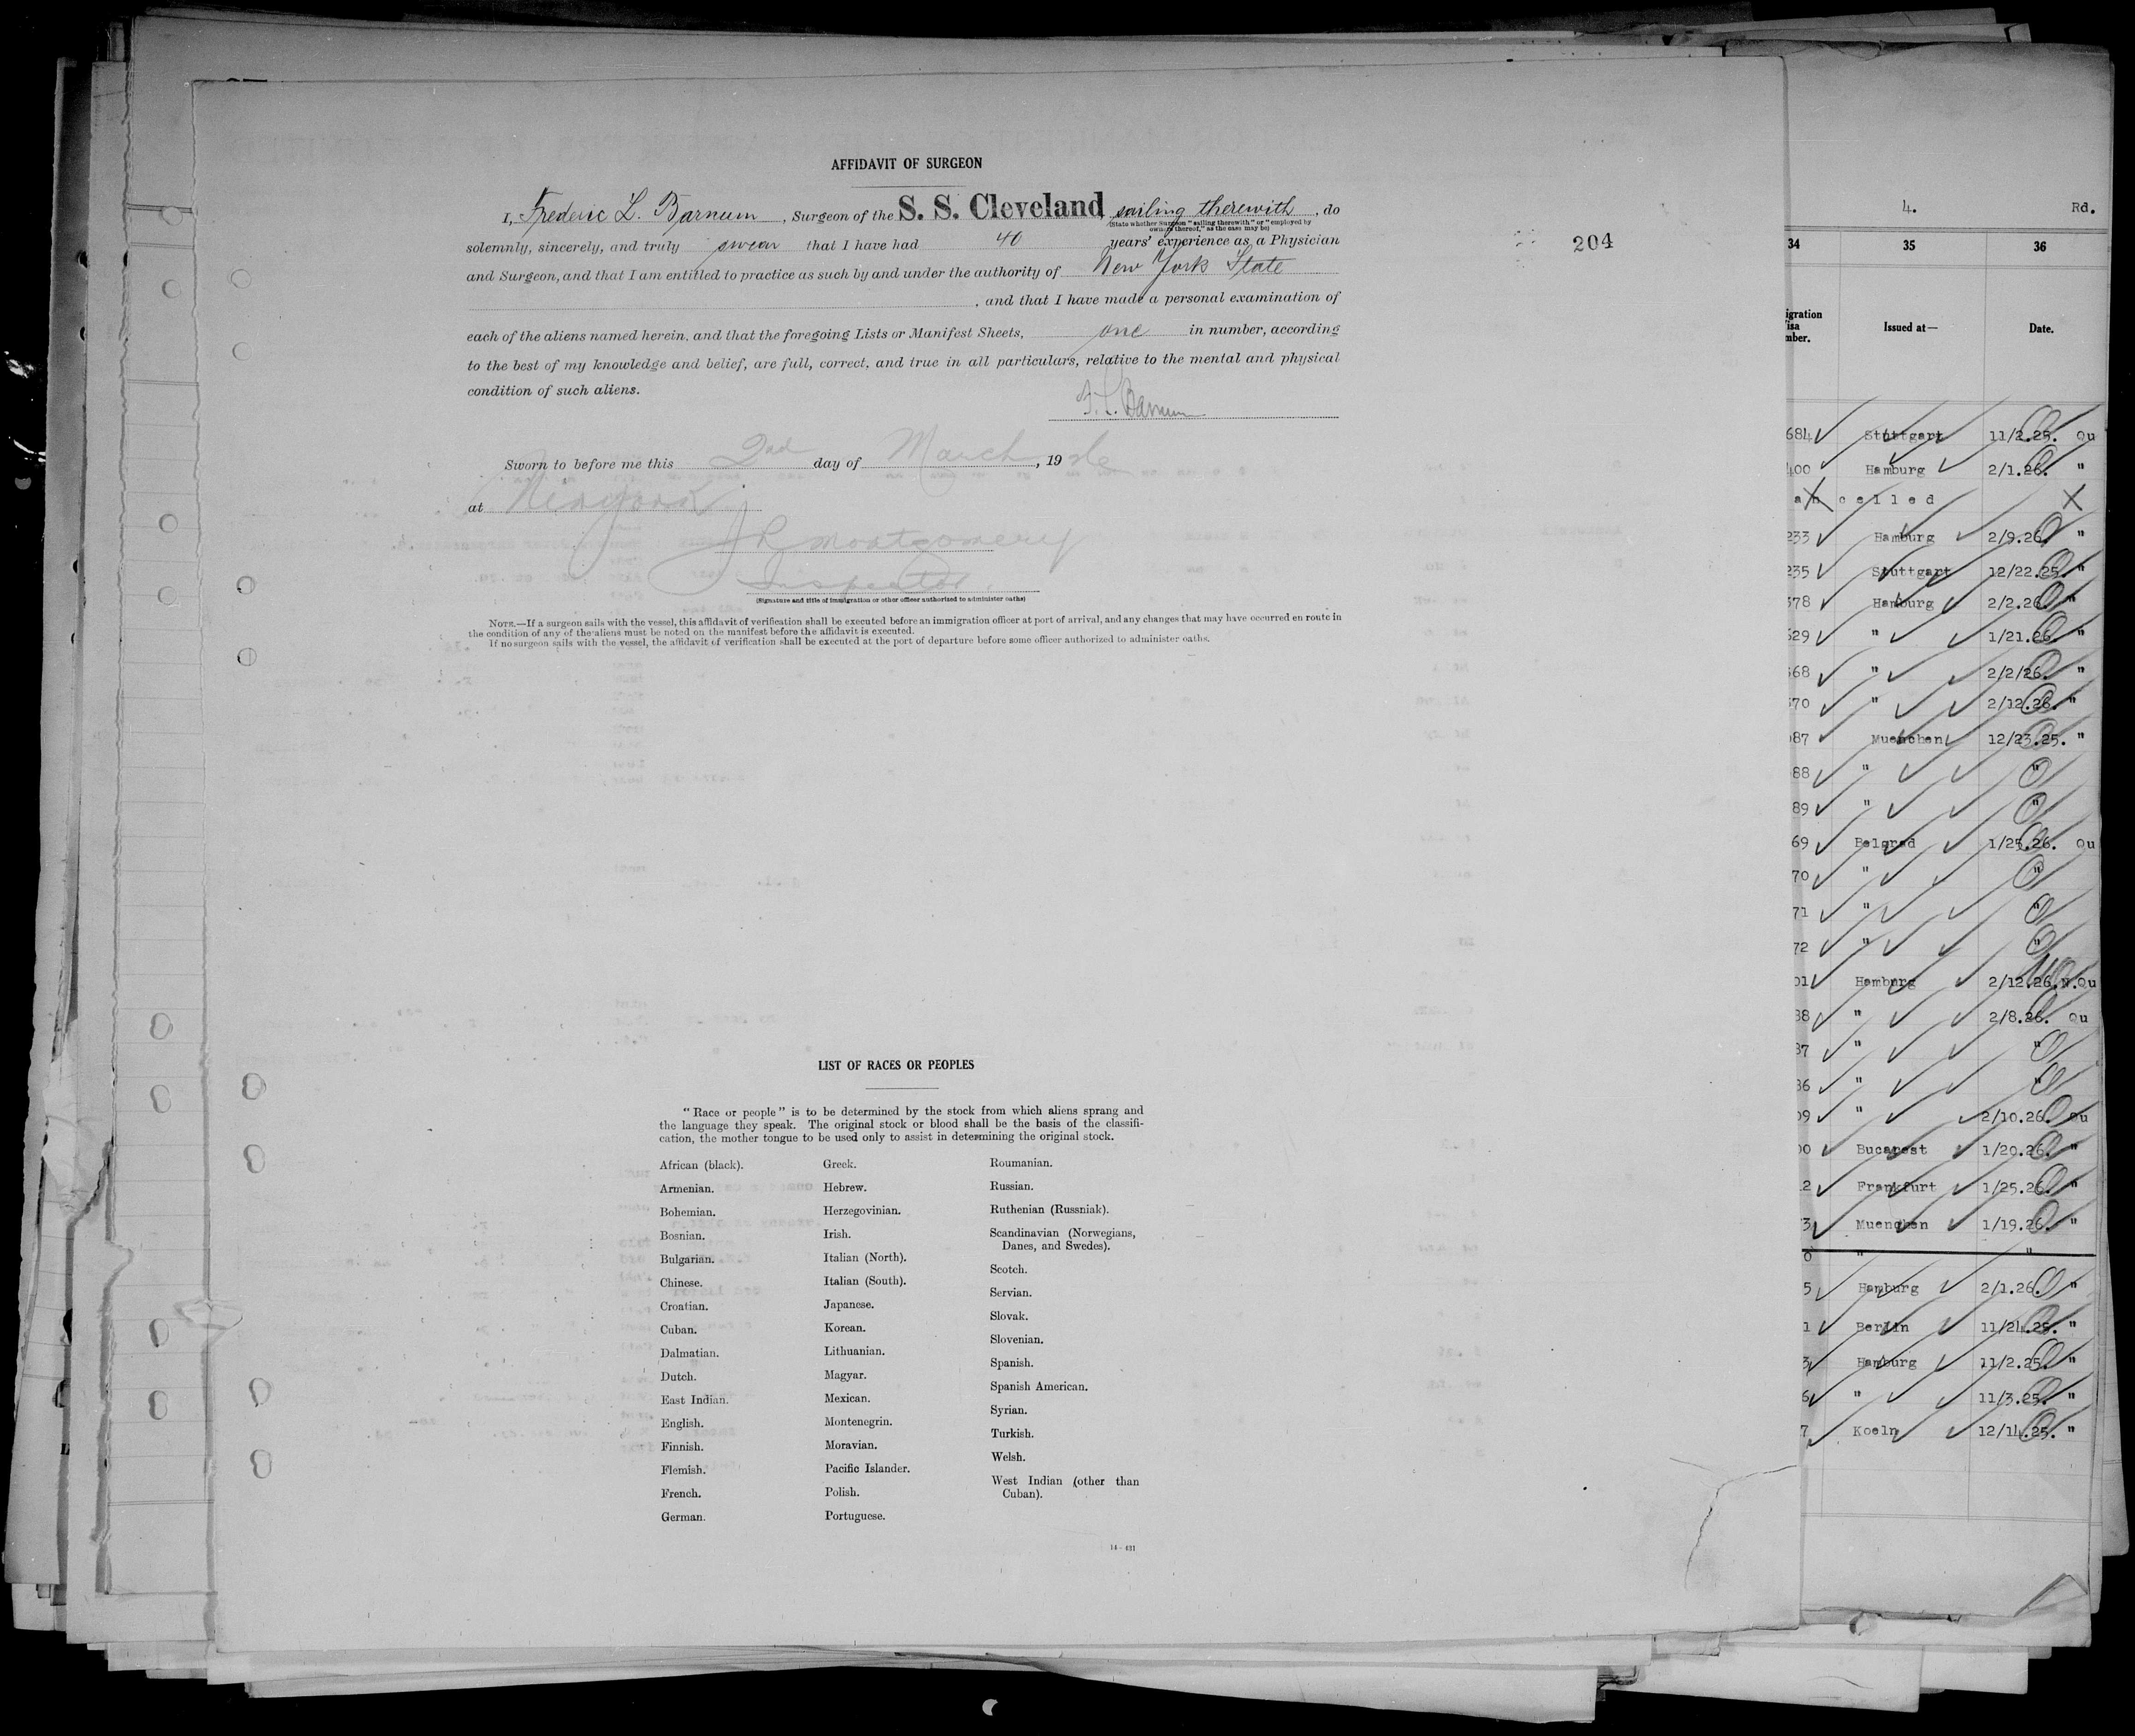 AFFIDAVIT OF SURGEON
I, Frederic L. Barnum, Surgeon of the S. S. Cleveland, sailing therewith, do
(State whether Surgeon "sailing therewith" or "employed by
owners thereof," as the case may be)
solemnly, sincerely, and truly swear that I have had 40 years' experience as a Physician
and Surgeon, and that I am entitled to practice as such by and under the authority of New York State
, and that I have made a personal examination of
each of the aliens named herein, and that the foregoing Lists or Manifest Sheets, one in number, according
to the best of my knowledge and belief, are full, correct, and true in all particulars, relative to the mental and physical
condition of such aliens.
F. L. Barnum
Sworn to before me this 2nd day of March, 1926
at New York
J R Montgomery
Inspector.
(Signature and title of immigration or other officer authorized to administer oaths)
NOTE.—If a surgeon sails with the vessel, this affidavit of verification shall be executed before an immigration officer at port of arrival, and any changes that may have occurred en route in
the condition of any of the aliens must be noted on the manifest before the affidavit is executed.
If no surgeon sails with the vessel, the affidavit of verification shall be executed at the port of departure before some officer authorized to administer oaths.
204
LIST OF RACES OR PEOPLES
"Race or people" is to be determined by the stock from which aliens sprang and
the language they speak. The original stock or blood shall be the basis of the classifi-
cation, the mother tongue to be used only to assist in determining the original stock.
African (black).
Armenian.
Bohemian.
Bosnian.
Bulgarian.
Chinese.
Croatian.
Cuban.
Dalmatian.
Dutch.
East Indian.
English.
Finnish.
Flemish.
French.
German.
Greek.
Hebrew.
Herzegovinian.
Irish.
Italian (North).
Italian (South).
Japanese.
Korean.
Lithuanian.
Magyar.
Mexican.
Montenegrin.
Moravian.
Pacific Islander.
Polish.
Portuguese.
Roumanian.
Russian.
Ruthenian (Russniak).
Scandinavian (Norwegians,
Danes, and Swedes).
Scotch.
Servian.
Slovak.
Slovenian.
Spanish.
Spanish American.
Syrian.
Turkish.
Welsh.
West Indian (other than
Cuban).
14—431
4. Rd.
34 35 36
Issued at— Date.
684 Stuttgart 11/2.25. Qu
400 Hamburg 2/1.26. "
celled
233 Hamburg 2/9.26. "
235 Stuttgart 12/22.25. "
378 Hamburg 2/2.26. "
529 " 1/21.26. "
68 " 2/2/26. "
70 " 2/12.26. "
87 Muenchen 12/23.25. "
88 " "
89 " "
69 Belgrad 1/25.26. Qu
70 " "
71 " "
72 " "
01 Hamburg 2/12.26.N.Qu
38 " 2/8.26. Qu
37 " "
36 " "
09 " 2/10.26. Qu
00 Bucarest 1/20.26. "
2 Frankfurt 1/25.26. "
3 Muenchen 1/19.26. "
0 " "
5 Hamburg 2/1.26. "
1 Berlin 11/24.25. "
3 Hamburg 11/2.25. "
6 " 11/3.25. "
7 Koeln 12/14.25. "